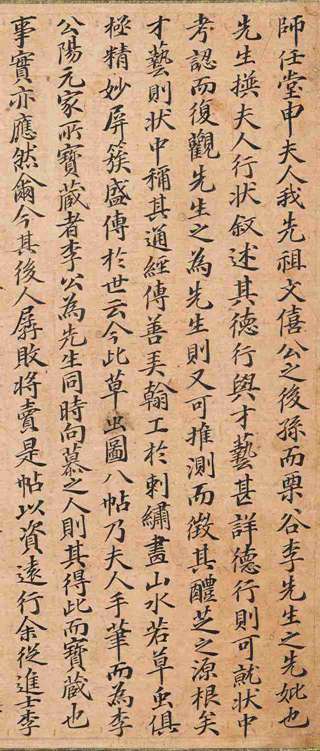 師任堂申夫人我先祖文僖公之後孫而栗谷李先生之先妣也
先生撰夫人行状叙述其德行與才藝甚詳德行則可就状中
考認而復觀先生之為先生則又可推測而徵其醴芝之源根矣
才藝則状中稱其通經傳善美翰工於刺繡畫山水若草虫俱
極精妙屏簇盛傳於世云今此草虫圖八帖乃夫人手筆而為李
公陽元家所寶藏者李公為先生同時向慕之人則其得此而寶藏也
事實亦應然爾今其後人孱敗將賣是帖以資遠行余從進士李